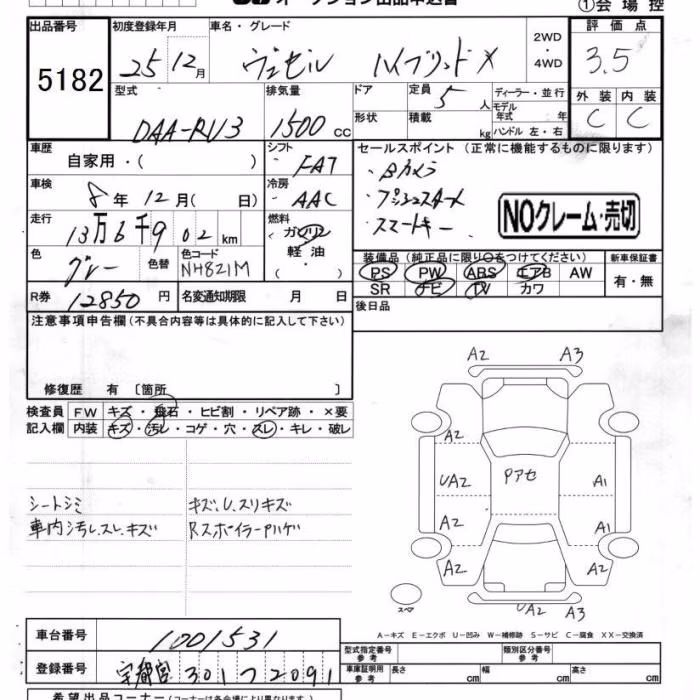 オークション出品申込書
①会場控
出品番号 5182
初度登録年月 25 12月
車名・グレード ヴェゼル ハイブリッドX
2WD・4WD
評価点 3.5
外装 C 内装 C
型式 DAA-RU3
排気量 1500 cc
ドア
形状
定員 5 人
積載 kg
ディーラー・並行
モデル年式 年
ハンドル 左・右
車歴 自家用・( )
シフト FAT
セールスポイント (正常に機能するものに限ります)
・Bカメラ
・プッシュスタート
・スマートキー
NOクレーム・売切
車検 8年12月( 日)
冷房 AAC
走行 13万6千902km
燃料 ガソリン 軽油 ( )
色 グレー 色替
色コード NH821M
装備品(純正品に限り○をつけてください)
PS PW ABS エアB AW
SR ナビ TV カワ
新車保証書 有・無
R券 12850円
名変通知期限 月 日
後日品
注意事項申告欄(不具合内容等は具体的に記入して下さい)
修復歴 有 〔箇所 〕
検査員記入欄
FW キズ・飛石・ヒビ割・リペア跡・×要
内装 キズ・汚レ・コゲ・穴・スレ・キレ・破レ
シートシミ
車内汚レ、スレ、キズ
キズ、U、スリキズ
Rスポイラーハゲ
A2 A3
A2
UA2 Pアセ A1
A2 A1
A2 A2
スペア
UA2 A3
A−キズ E−エクボ U−凹み W−補修跡 S−サビ C−腐食 XX−交換済
車台番号 1001531
登録番号 宇都宮 301 つ 2091
型式指定番号 参考
類別区分番号 参考
車庫証明用 参考 長さ cm 幅 cm 高さ cm
希望出品コーナー(コーナーは各会場により異なります)